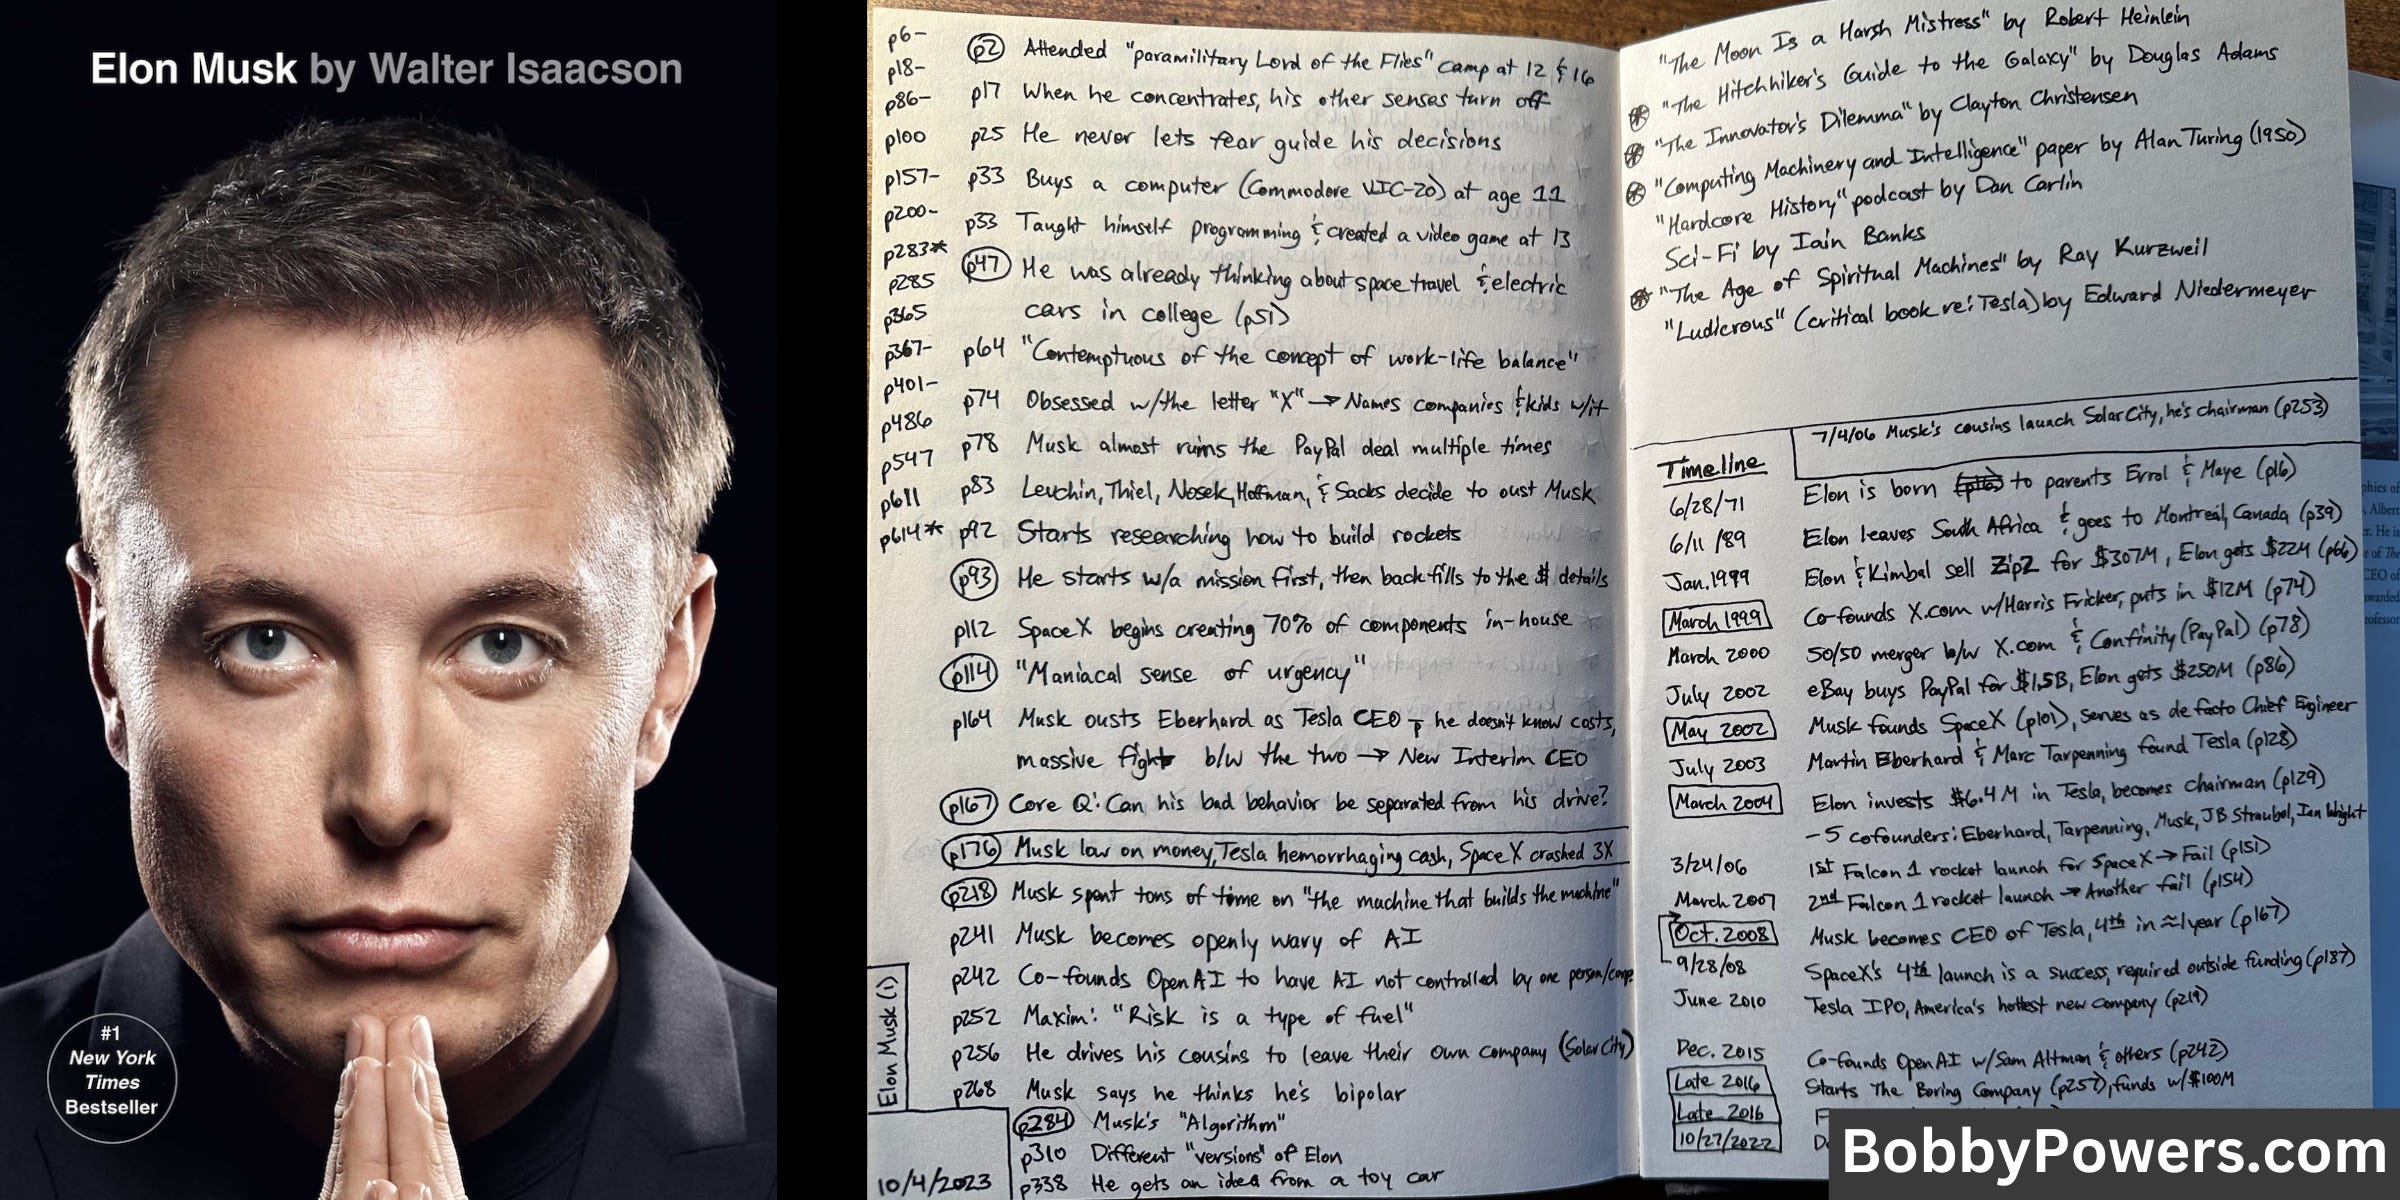 Elon Musk by Walter Isaacson
#1
New York
Times
Bestseller
p6-
p18-
p86-
p100
p157-
p200-
p283*
p285
p365
p367-
p401-
p486
p547
p611
p614*
p2 Attended "paramilitary Lord of the Flies" camp at 12 & 16
p17 When he concentrates, his other senses turn off
p25 He never lets fear guide his decisions
p33 Buys a computer (Commodore VIC-20) at age 11
p33 Taught himself programming & created a video game at 13
p47 He was already thinking about space travel & electric
cars in college (p51)
p64 "Contemptuous of the concept of work-life balance"
p74 Obsessed w/the letter "X" → Names companies & kids w/it
p78 Musk almost ruins the PayPal deal multiple times
p83 Levchin, Thiel, Nosek, Hoffman, & Sacks decide to oust Musk
p92 Starts researching how to build rockets
p93 He starts w/a mission first, then backfills to the $ details
p112 SpaceX begins creating 70% of components in-house
p114 "Maniacal sense of urgency"
p164 Musk ousts Eberhard as Tesla CEO - he doesn't know costs,
massive fight b/w the two → New Interim CEO
p167 Core Q: Can his bad behavior be separated from his drive?
p176 Musk low on money, Tesla hemorrhaging cash, SpaceX crashed 3X
p218 Musk spent tons of time on "the machine that builds the machine"
p241 Musk becomes openly wary of AI
p242 Co-founds OpenAI to have AI not controlled by one person/corp.
p252 Maxim: "Risk is a type of fuel"
p256 He drives his cousins to leave their own company (SolarCity)
p268 Musk says he thinks he's bipolar
p284 Musk's "Algorithm"
p310 Different "versions" of Elon
p338 He gets an idea from a toy car
Elon Musk (1)
10/4/2023
"The Moon Is a Harsh Mistress" by Robert Heinlein
"The Hitchhiker's Guide to the Galaxy" by Douglas Adams
"The Innovator's Dilemma" by Clayton Christensen
"Computing Machinery and Intelligence" paper by Alan Turing (1950)
"Hardcore History" podcast by Dan Carlin
Sci-Fi by Iain Banks
"The Age of Spiritual Machines" by Ray Kurzweil
"Ludicrous" (critical book re: Tesla) by Edward Niedermeyer
7/4/06 Musk's cousins launch SolarCity, he's chairman (p253)
Timeline
6/28/71 Elon is born (p16) to parents Errol & Maye (p16)
6/11/89 Elon leaves South Africa & goes to Montreal, Canada (p39)
Jan. 1999 Elon & Kimbal sell Zip2 for $307M, Elon gets $22M (p66)
March 1999 Co-founds X.com w/Harris Fricker, puts in $12M (p74)
March 2000 50/50 merger b/w X.com & Confinity (PayPal) (p78)
July 2002 eBay buys PayPal for $1.5B, Elon gets $250M (p86)
May 2002 Musk founds SpaceX (p101), serves as de facto Chief Engineer
July 2003 Martin Eberhard & Marc Tarpenning found Tesla (p128)
March 2004 Elon invests $6.4M in Tesla, becomes chairman (p129)
-5 cofounders: Eberhard, Tarpenning, Musk, JB Straubel, Ian Wright
3/24/06 1st Falcon 1 rocket launch for SpaceX → Fail (p151)
March 2007 2nd Falcon 1 rocket launch → Another fail (p154)
Oct. 2008 Musk becomes CEO of Tesla, 4th in ≈1 year (p167)
9/28/08 SpaceX's 4th launch is a success, required outside funding (p187)
June 2010 Tesla IPO, America's hottest new company (p219)
Dec. 2015 Co-founds OpenAI w/Sam Altman & others (p242)
Late 2016 Starts The Boring Company (p257), funds w/$100M
Late 2016
10/27/2022
BobbyPowers.com